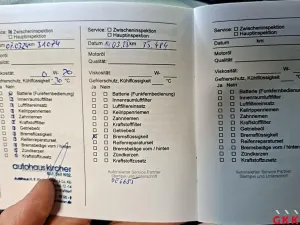 Service: Zwischeninspektion
Hauptinspektion
Datum km
Motoröl
Qualität:
Viskosität: W-
Gefrierschutz, Kühlflüssigkeit: °C
Ja Nein
Batterie (Funkfernbedienung)
Innenraumluftfilter
Luftfiltereinsatz
Keilrippenriemen
Zahnriemen
Kraftstofffilter
Getriebeöl
Bremsflüssigkeit
Reifenreparaturset
Bremsbeläge vorn / hinten
Zündkerzen
Kraftstoffzusatz
autohaus kircher
Service: Zwischeninspektion
Hauptinspektion
Datum km 35.984
Motoröl
Qualität:
Viskosität: W-
Gefrierschutz, Kühlflüssigkeit: °C
Ja Nein
Batterie (Funkfernbedienung)
Innenraumluftfilter
Luftfiltereinsatz
Keilrippenriemen
Zahnriemen
Kraftstofffilter
Getriebeöl
Bremsflüssigkeit
Reifenreparaturset
Bremsbeläge vorn / hinten
Zündkerzen
Kraftstoffzusatz
Autorisierter Service Partner
Stempel und Unterschrift
Service: Zwischeninspektion
Hauptinspektion
Datum km
Motoröl
Qualität:
Viskosität: W-
Gefrierschutz, Kühlflüssigkeit: °C
Ja Nein
Batterie (Funkfernbedienung)
Innenraumluftfilter
Luftfiltereinsatz
Keilrippenriemen
Zahnriemen
Kraftstofffilter
Getriebeöl
Bremsflüssigkeit
Reifenreparaturset
Bremsbeläge vorn / hinten
Zündkerzen
Kraftstoffzusatz
Autorisierter Service Partner
Stempel und Unterschrift